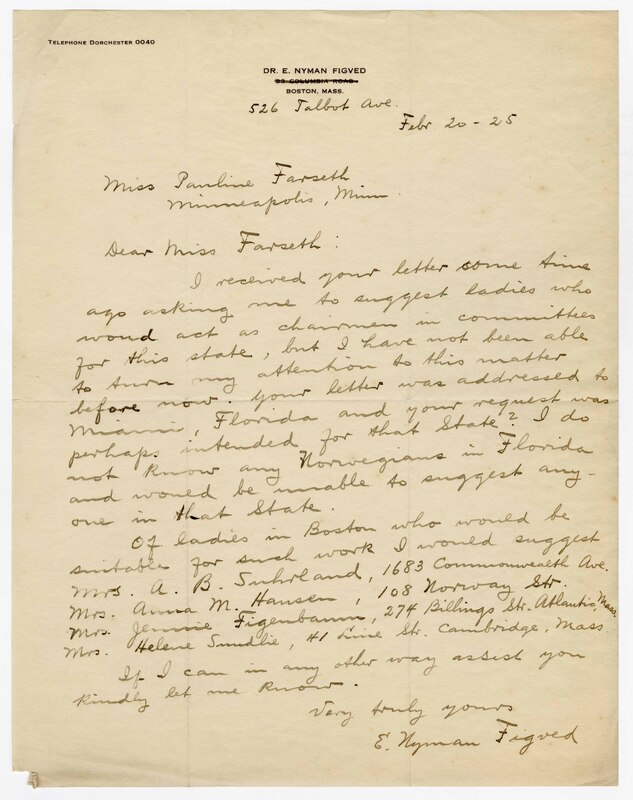 TELEPHONE DORCHESTER 0040
DR. E. NYMAN FIGVED
83 COLUMBIA ROAD
BOSTON, MASS.
526 Talbot Ave.
Febr 20 - 25
Miss Pauline Farseth
Minneapolis, Minn.
Dear Miss Farseth:
I received your letter some time
ago asking me to suggest ladies who
would act as chairmen in committees
for this state, but I have not been able
to turn my attention to this matter
before now. Your letter was addressed to
Miami, Florida and your request was
perhaps intended for that State? I do
not know any Norwegians in Florida
and would be unable to suggest any-
one in that State.
Of ladies in Boston who would be
suitable for such work I would suggest
Mrs. A. B. Suhrland, 1683 Commonwealth Ave.
Mrs. Anna M. Hansen, 108 Norway Str.
Mrs. Jennie Figenbaum, 274 Billings Str. Atlantic, Mass.
Mrs. Helene Sundlie, 41 Line Str. Cambridge, Mass
If I can in any other way assist you
kindly let me know.
Very truly yours
E. Nyman Figved